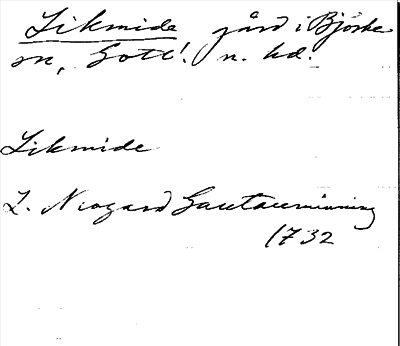 Likmide gård i Björke
sn, Gotl. n. hd.
Likmide
L. Neogard Gautauminning
1732